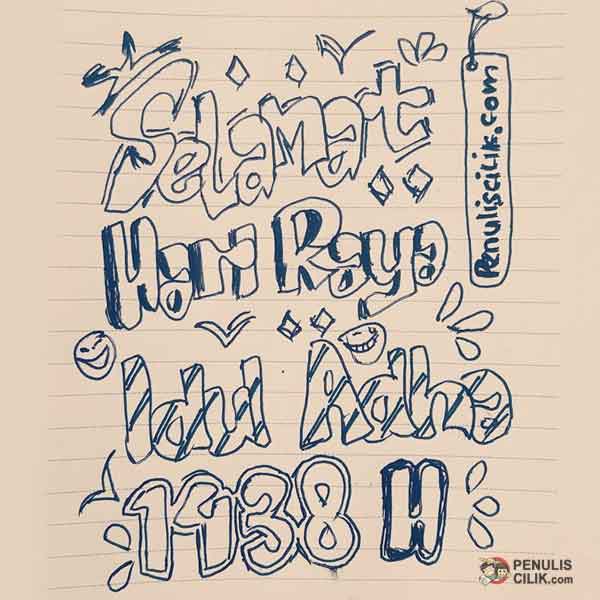 Selamat
Hari Raya
Idul Adha
1438 H
Penuliscilik.com
PENULIS
CILIK.com